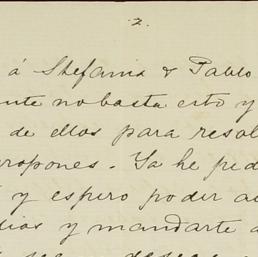 2.
á Stefania & Pablo
ente no basta esto y
de ellos para resol
ropones. Ya he ped
y espero poder
dios y mandarte
deseas